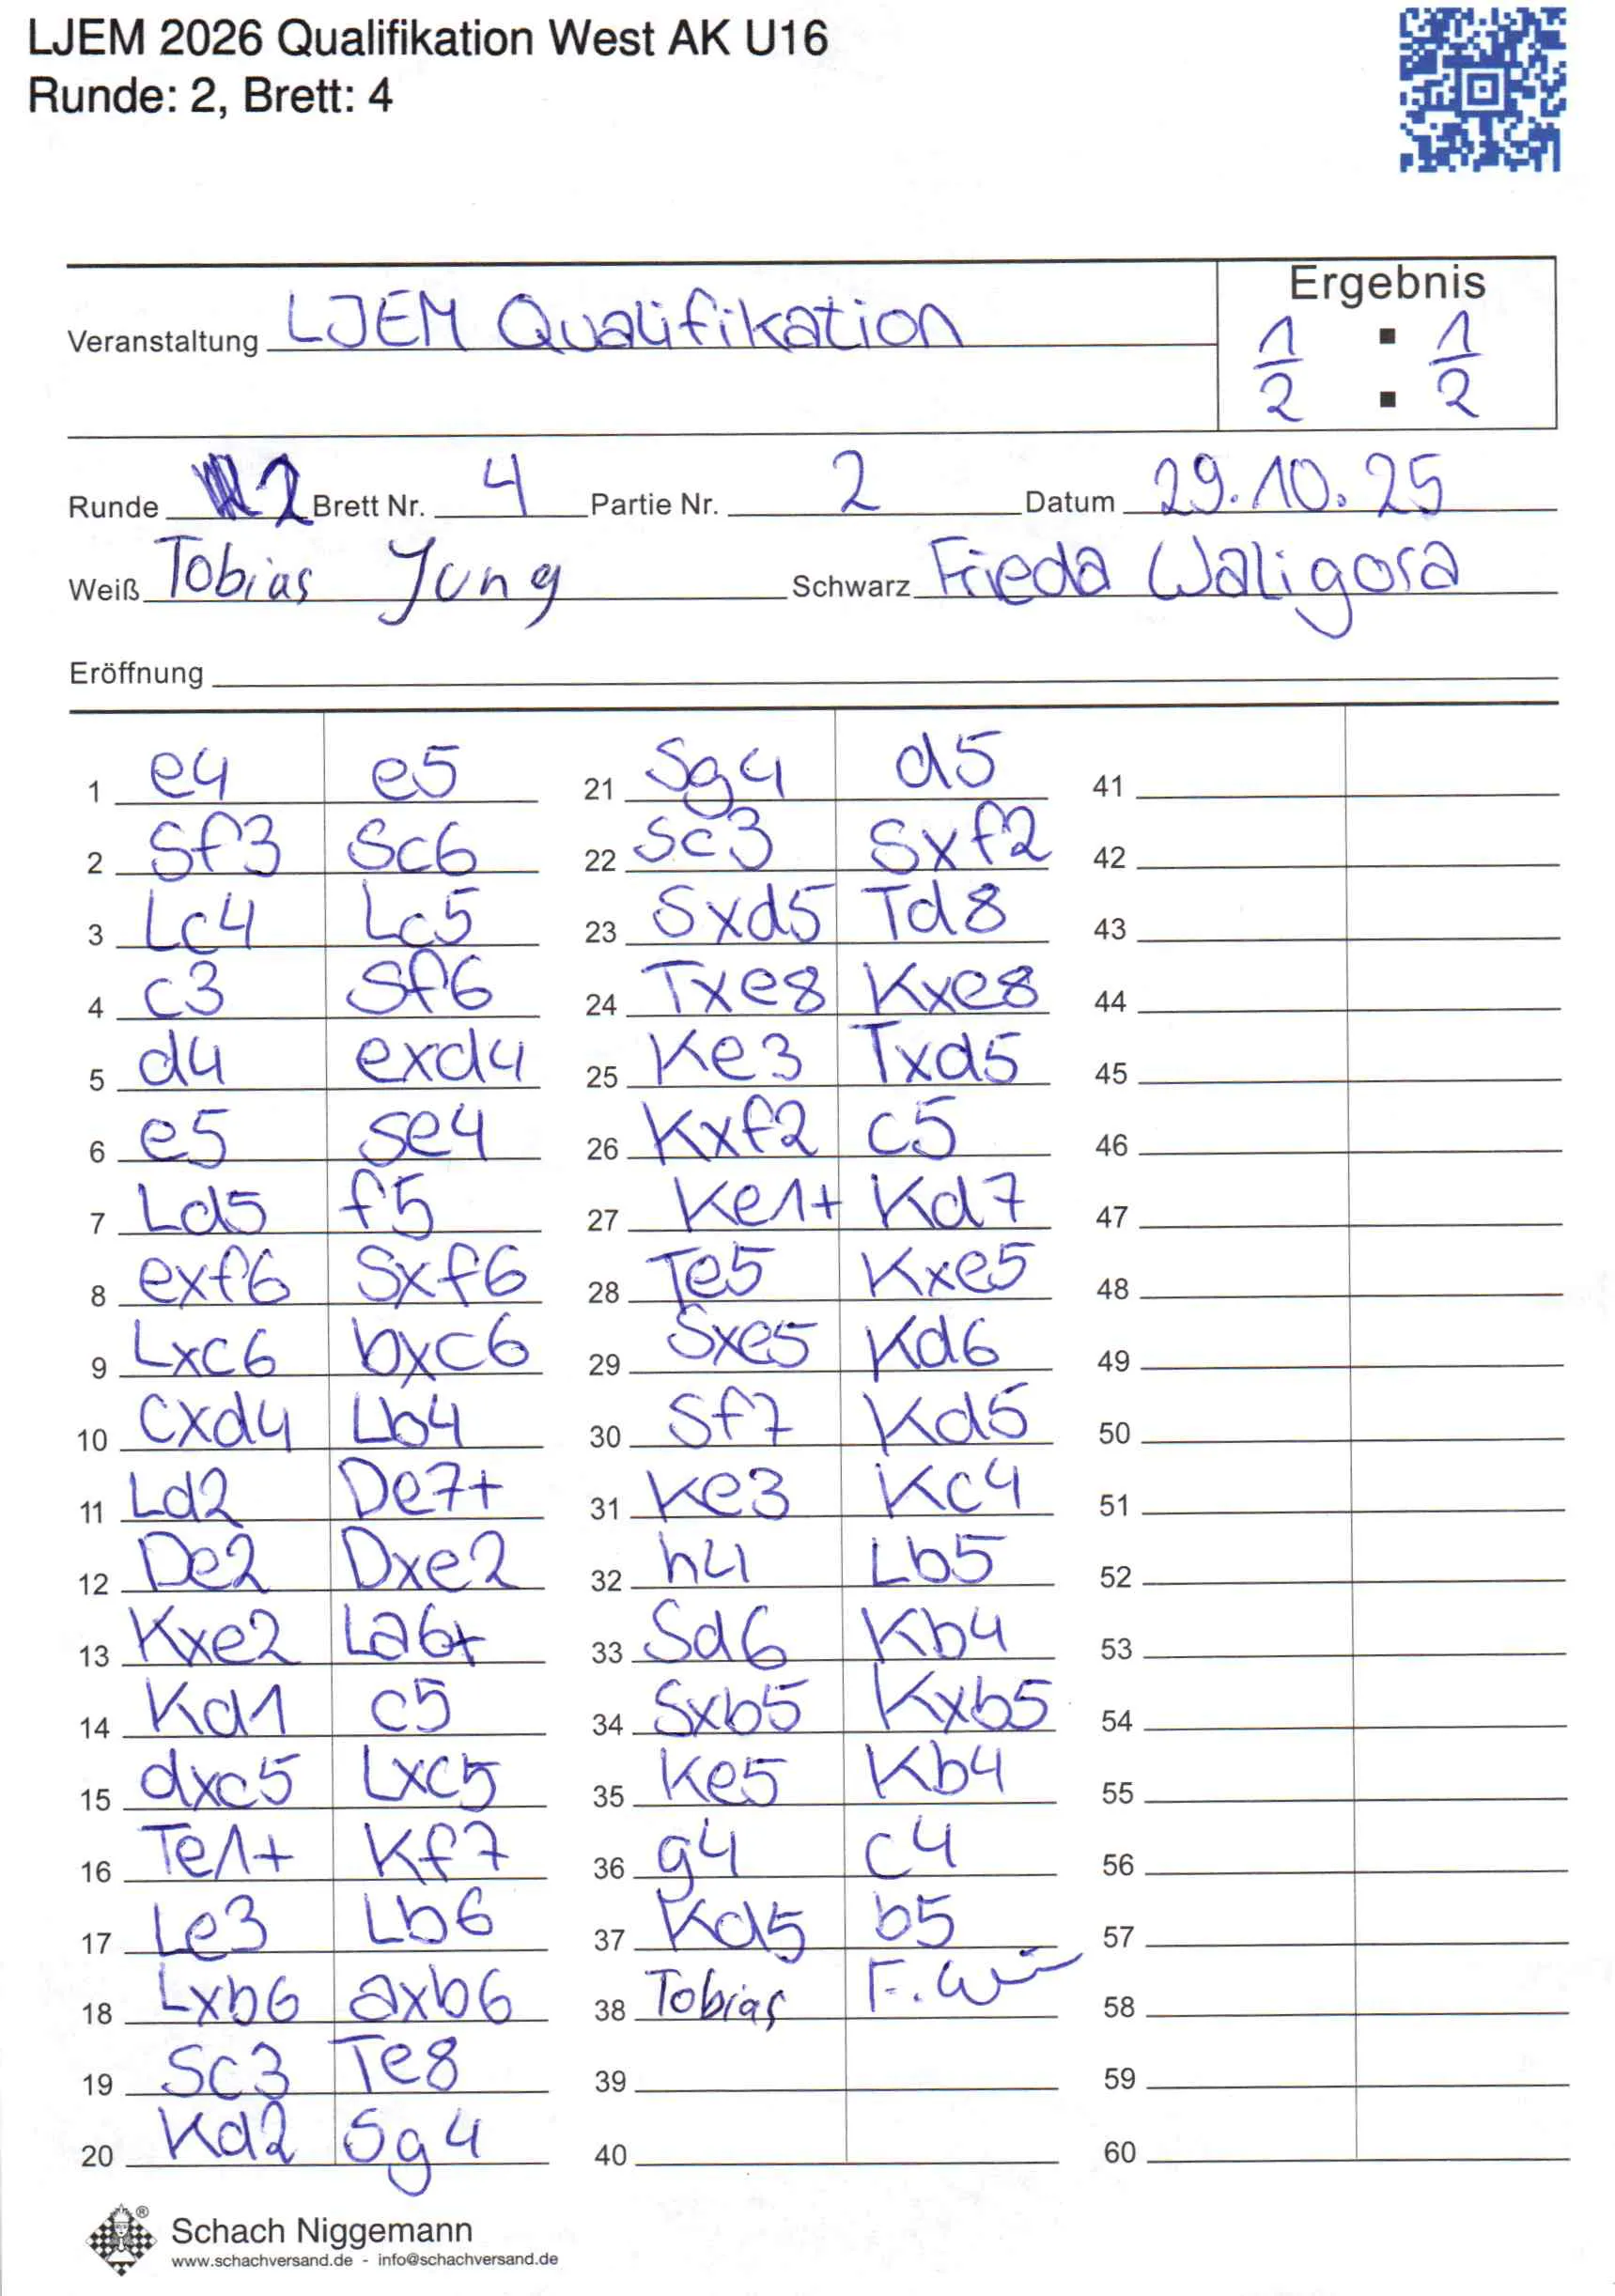 LJEM 2026 Qualifikation West AK U16
Runde: 2, Brett: 4
Ergebnis
Veranstaltung LJEM Qualifikation
1/2 : 1/2
Runde 2 Brett Nr. 4 Partie Nr. 2 Datum 29.10.25
Weiß Tobias Jung Schwarz Frieda Waligora
Eröffnung
1 e4 e5 21 Sg4 d5 41
2 Sf3 Sc6 22 Sc3 Sxf2 42
3 Lc4 Lc5 23 Sxd5 Td8 43
4 c3 Sf6 24 Txe8 Kxe8 44
5 d4 exd4 25 Ke3 Txd5 45
6 e5 Se4 26 Kxf2 c5 46
7 Ld5 f5 27 Ke1+ Kd7 47
8 exf6 Sxf6 28 Te5 Kxe5 48
9 Lxc6 bxc6 29 Sxe5 Kd6 49
10 cxd4 Lb4 30 Sf7 Kd5 50
11 Ld2 De7+ 31 Ke3 Kc4 51
12 De2 Dxe2 32 h4 Lb5 52
13 Kxe2 La6+ 33 Sd6 Kb4 53
14 Kd1 c5 34 Sxb5 Kxb5 54
15 dxc5 Lxc5 35 Ke5 Kb4 55
16 Te1+ Kf7 36 g4 c4 56
17 Le3 Lb6 37 Kd5 b5 57
18 Lxb6 axb6 38 Tobias F. W 58
19 Sc3 Te8 39 59
20 Kd2 Sg4 40 60
Schach Niggemann
www.schachversand.de - info@schachversand.de